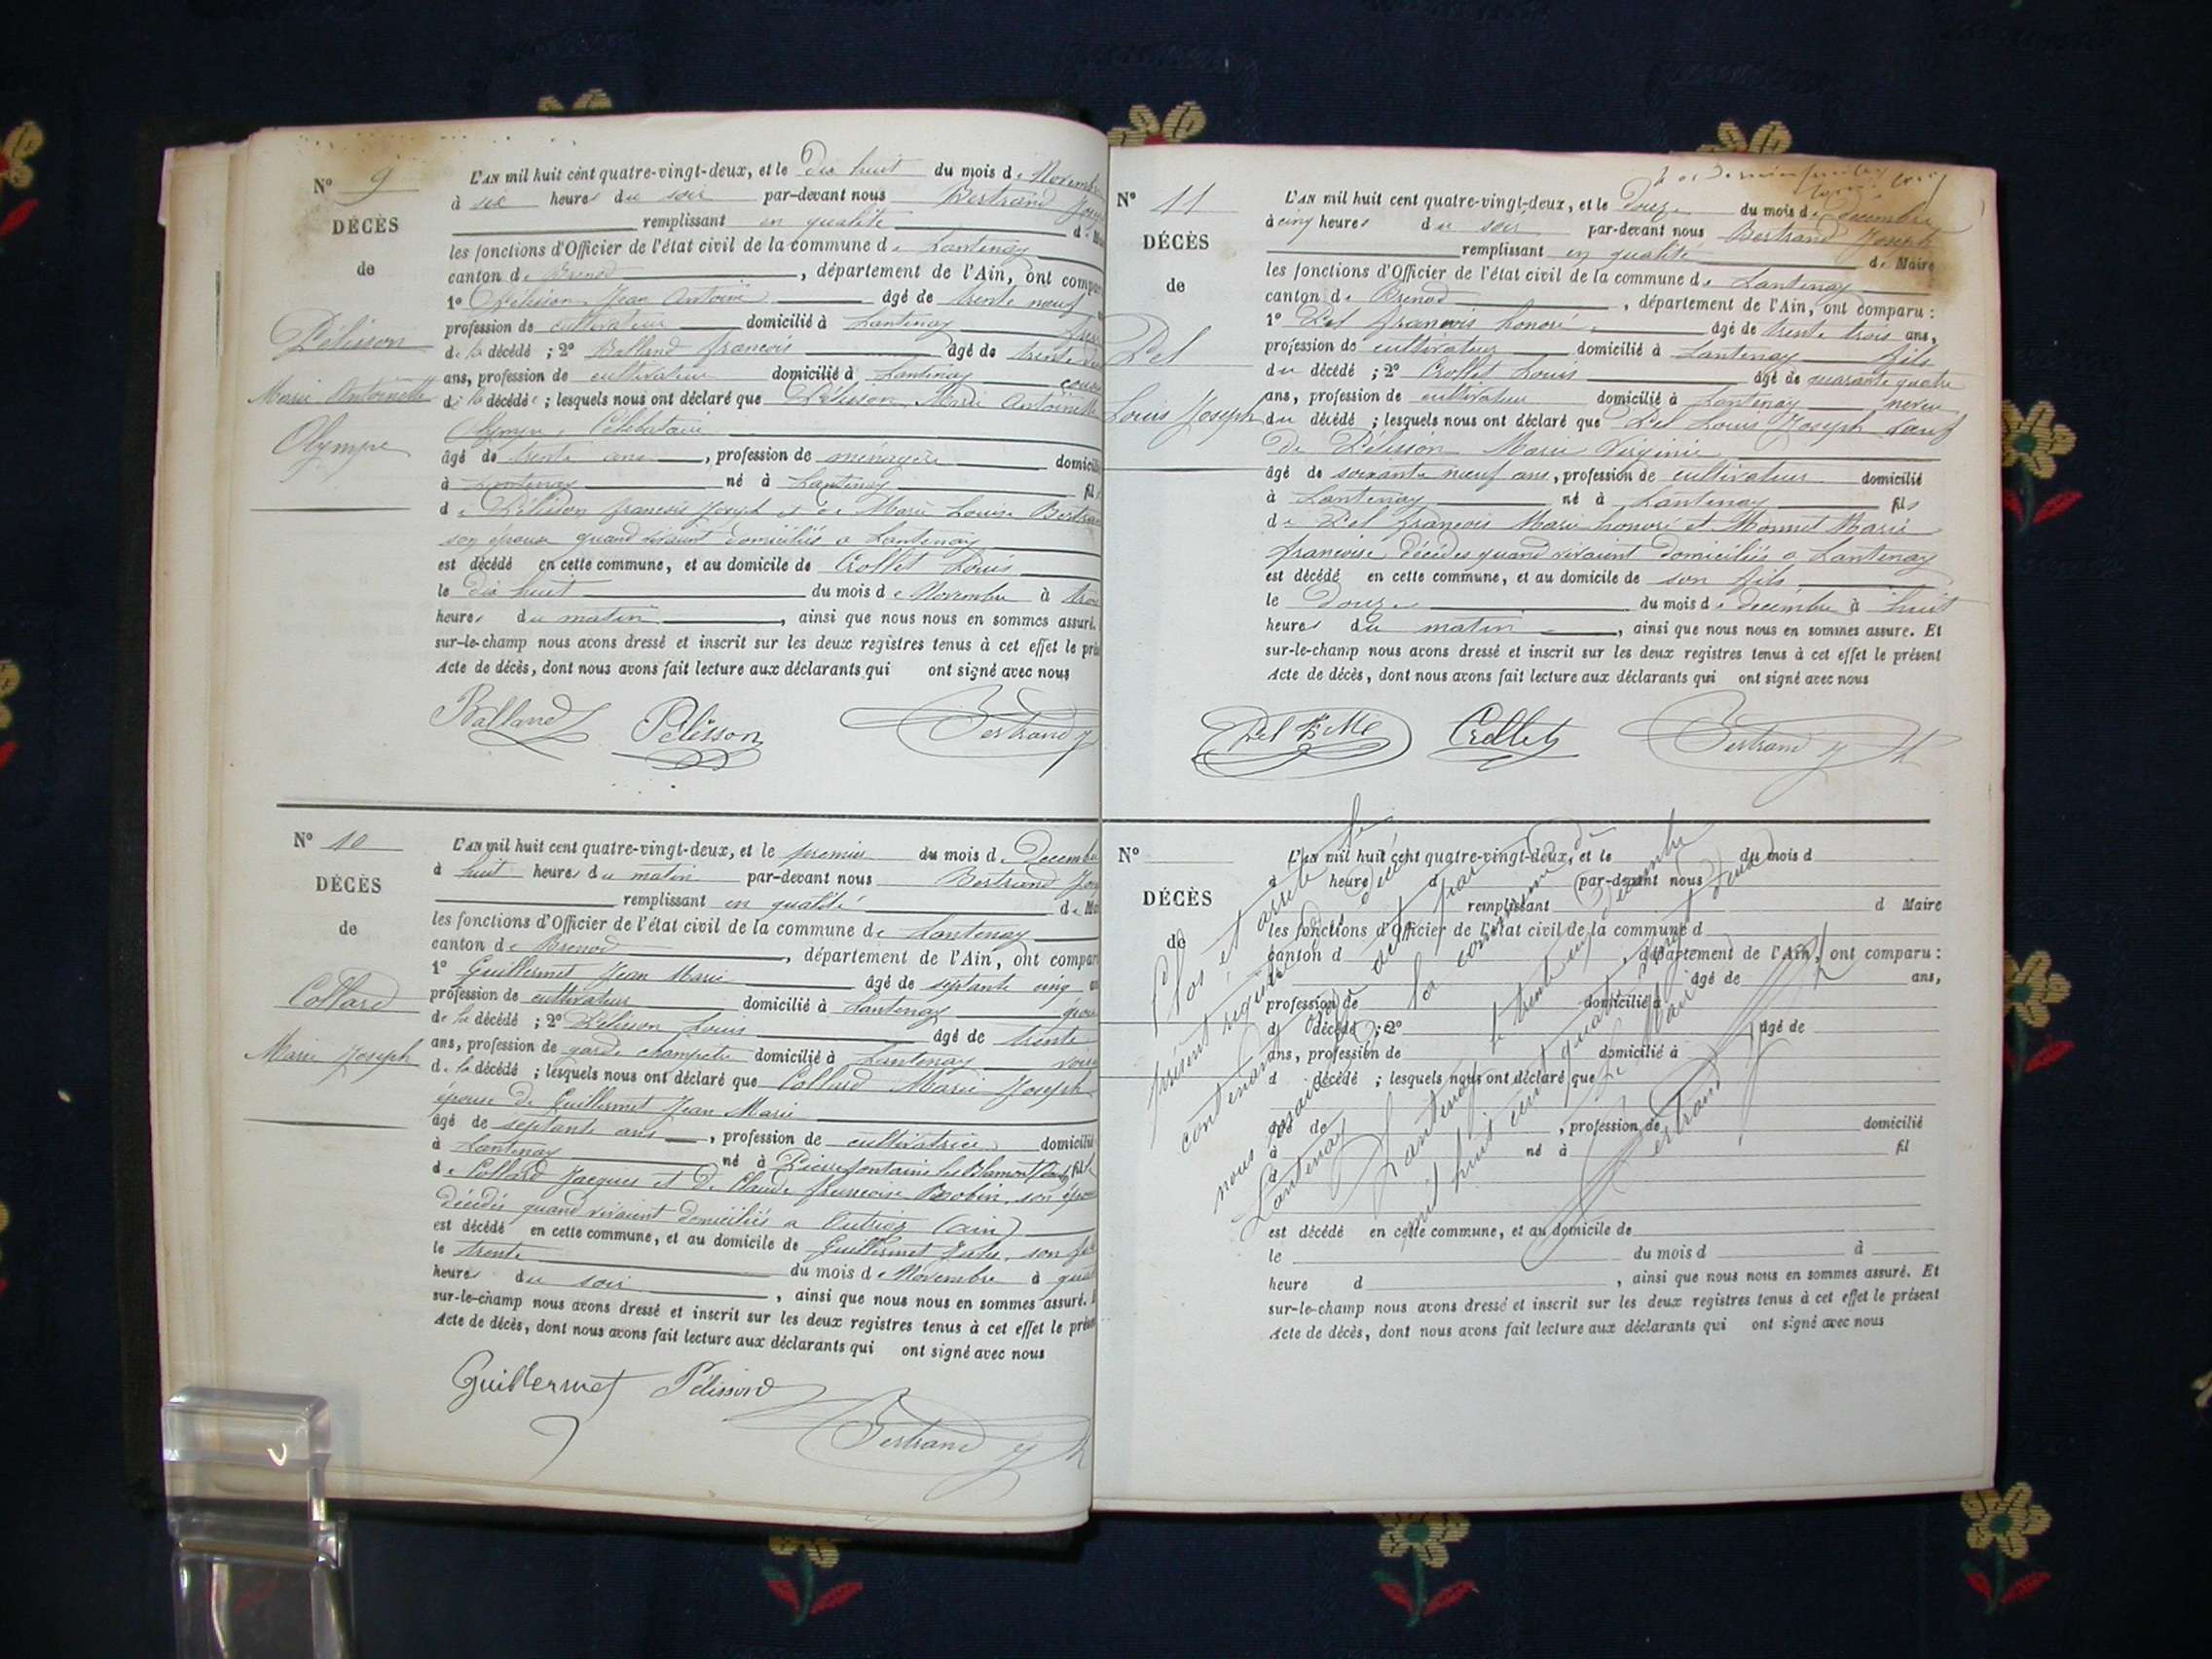 N° 9
DÉCÈS
de
Pélisson
Marie Antoinette
Olympe
L'AN mil huit cent quatre-vingt-deux, et le dix huit du mois de Novembre
à six heures du soir par-devant nous Bertrand
remplissant en qualité de
les fonctions d'Officier de l'état civil de la commune de Lantenay
canton de Brenod, département de l'Ain, ont
1° Pélisson Jean Antoine âgé de trente neuf
profession de cultivateur domicilié à Lantenay
de la décédé ; 2° Balland françois âgé de trente
ans, profession de cultivateur domicilié à Lantenay
de la décédé ; lesquels nous ont déclaré que Pélisson Marie Antoinette
Olympe, Célibataire
âgé de trente ans, profession de ménagère
à Lantenay né à Lantenay fil
de Pélisson françois Joseph et de Marie Louise
son épouse quand vivaient domiciliés a Lantenay
est décédé en cette commune, et au domicile de Crollet Louis
le dix huit du mois de Novembre à
heures du matin, ainsi que nous nous en sommes assuré.
sur-le-champ nous avons dressé et inscrit sur les deux registres tenus à cet effet le
Acte de décès, dont nous avons fait lecture aux déclarants qui ont signé avec nous
Balland Pélisson Bertrand J
N° 10
DÉCÈS
de
Collard
Marie Joseph
L'AN mil huit cent quatre-vingt-deux, et le premier du mois de Decembre
à huit heures du matin par-devant nous Bertrand
remplissant en qualité de
les fonctions d'Officier de l'état civil de la commune de Lantenay
canton de Brenod, département de l'Ain, ont
1° Guillermet Jean Marie âgé de septante cinq
profession de cultivateur domicilié à Lantenay
de la décédé ; 2° Pélisson Louis âgé de trente
ans, profession de garde champetre domicilié à Lantenay
de la décédé ; lesquels nous ont déclaré que Collard Marie Joseph
épouse de Guillermet Jean Marie
âgé de septante ans, profession de cultivatrice domicilié
à Lantenay né à Pierrefontaine les Blamont
de Collard Jacques et de Claude françoise Bobin, son
décédés quand vivaient domiciliés a Outriaz (ain)
est décédé en cette commune, et au domicile de Guillermet son
le trente du mois de Novembre à
heures du soir, ainsi que nous nous en sommes assuré.
sur-le-champ nous avons dressé et inscrit sur les deux registres tenus à cet effet le
Acte de décès, dont nous avons fait lecture aux déclarants qui ont signé avec nous
Guillermet Pélisson
Bertrand J
N° 11
DÉCÈS
de
Pel
Louis Joseph
L'AN mil huit cent quatre-vingt-deux, et le douze du mois de Décembre
à cinq heures du soir par-devant nous Bertrand Joseph
remplissant en qualité de Maire
les fonctions d'Officier de l'état civil de la commune de Lantenay
canton de Brenod, département de l'Ain, ont comparu :
1° Pel françois honoré âgé de trente trois ans,
profession de cultivateur domicilié à Lantenay fils
du décédé ; 2° Crollet Louis âgé de quarante quatre
ans, profession de cultivateur domicilié à Lantenay neveu
du décédé ; lesquels nous ont déclaré que Pel Louis Joseph veuf
de Pélisson Marie Virginie
âgé de soixante neuf ans, profession de cultivateur domicilié
à Lantenay né à Lantenay fils
de Pel françois Marie honoré et Monnet Marie
françoise décédés quand vivaient domiciliés a Lantenay
est décédé en cette commune, et au domicile de son fils
le douze du mois de decembre à huit
heures du matin, ainsi que nous nous en sommes assuré. Et
sur-le-champ nous avons dressé et inscrit sur les deux registres tenus à cet effet le présent
Acte de décès, dont nous avons fait lecture aux déclarants qui ont signé avec nous
Pel Crollet Bertrand J
N°
DÉCÈS
de
L'AN mil huit cent quatre-vingt-deux, et le du mois d
à heure d par-devant nous
remplissant d Maire
les fonctions d'Officier de l'état civil de la commune d
canton d , département de l'Ain, ont comparu :
1° âgé de ans,
profession de domicilié à
d décédé ; 2° âgé de
ans, profession de domicilié à
d décédé ; lesquels nous ont déclaré que
âgé de , profession de domicilié
à né à fil
d
est décédé en cette commune, et au domicile de
le du mois d à
heure d , ainsi que nous nous en sommes assuré. Et
sur-le-champ nous avons dressé et inscrit sur les deux registres tenus à cet effet le présent
Acte de décès, dont nous avons fait lecture aux déclarants qui ont signé avec nous
Clos et arrêté le
présent registre de décès
contenant actes par
nous maire de la commune de
Lantenay
Lantenay le trente un Décembre
mil huit cent quatre vingt deux
Le Maire
Bertrand J